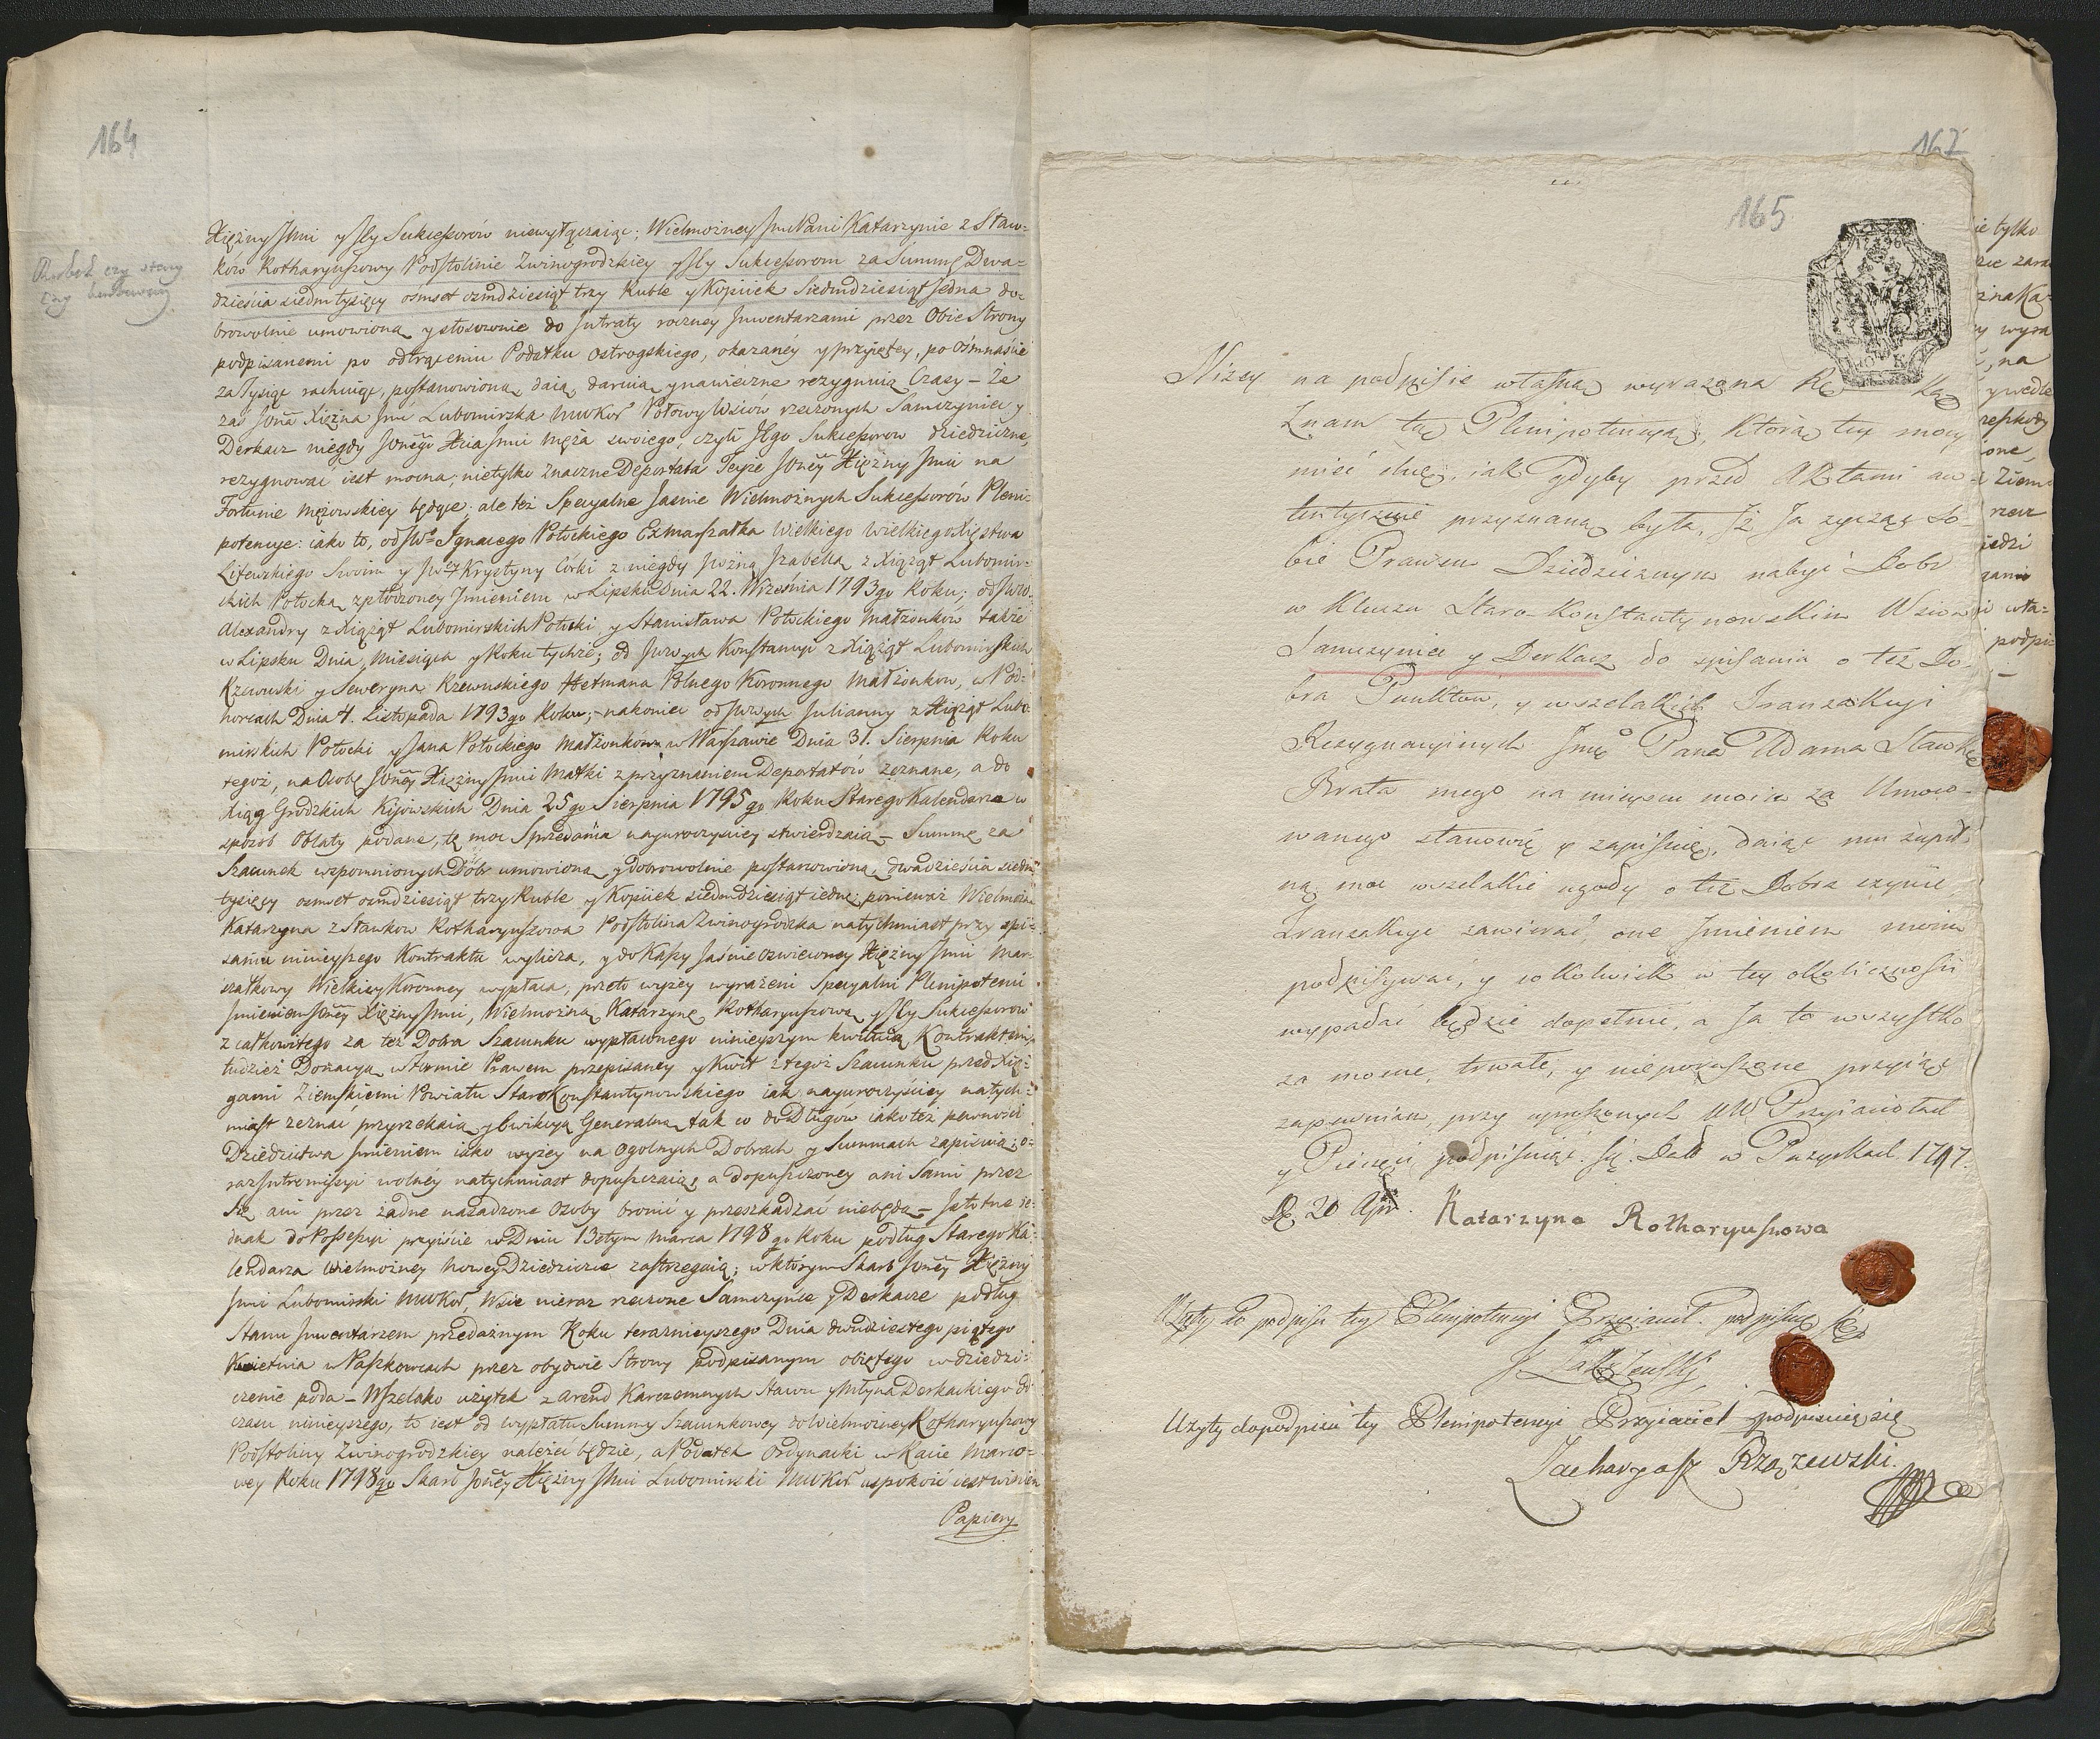 164
Xiężny Jmci y Jey Sukcessorów niewyłączaiąc; Wielmożney Jmć Pani Katarzynie z Staw-
ków Rotharyuszowy Podstolinie Zwinogrodzkiey y Jey Sukcessorom za Summę Dwa-
dzieścia siedm tysięcy ośmset ośmdziesiąt trzy Ruble y Kopiiek Siedmdziesiąt Jedna do-
browolnie umowioną y stosownie do Intraty roczney Inwentarzami przez Obie Strony
podpisanemi po odtrąceniu Podatku Ostrogskiego, okazaney y przyiętey, po Ośmnaście
za Tysiąc rachuiąc, postanowioną, daią, daruią y nawieczne rezygnuią Czasy – Że
zaś Jaśnie Oświecona Xiężna Jmć Lubomirska MWKor Połowy Wsiów rzeczonych Samczyniec y
Derkacz niegdy Xcia Jmci Męża swoiego, czyli Jego Sukcessorow dziedziczne,
rezygnować iest mocna; nietylko znaczne Deportata Teyże Xiężny Jmci na
Fortunie Mężowskiey będące; ale też Specyalne Jaśnie Wielmożnych Sukcessorów Pleni-
potencye: iako to, od Ignacego Potockiego Exmarszałka Wielkiego Wielkiego Xięstwa
Litewskiego Swoim y Krystyny Córki z niegdy Izabellą z Xiąząt Lubomir-
skich Potocką spłodzoney Imieniem w Lipsku Dnia 22. Września 1793go Roku; od
Alexandry z Xiąząt Lubomirskich Potocki y Stanisława Potockiego Małżonków także
w Lipsku Dnia, Miesiąca y Roku tychże; od Konstancyi z Xiąząt Lubomirskich
Rzewuski y Seweryna Rzewuskiego Hetmana Polnego Koronnego Małżonkow, w Pod-
horcach Dnia 4. Listopada 1793go Roku; nakoniec od Julianny z Xiąząt Lubo-
mirskich Potocki y Jana Potockiego Małżonków w Warszawie Dnia 31. Sierpnia Roku
tegoż, na Osobę Xiężny Jmci Matki z przyznaniem Deportatów zeznane, a do
Xiąg Grodzkich Kijowskich Dnia 25go Sierpnia 1795go Roku Starego Kalendarza w
sposób Oblaty podane, tę moc Sprzedania nayuroczyściey stwierdzaią – Summę za
Szacunek wzpomnionych Dóbr umowioną y dobrowolnie postanowioną, dwadzieścia siedm
tysięcy ośmset ośmdziesiąt trzy Ruble y Kopiiek siedmdziesiąt iedną ponieważ Wielmożna
Katarzyna z Stawkow Rotharyuszowa Podstolina Zwinogrodzka natychmiast przy spi-
saniu ninieyszego Kontraktu wylicza, y do Kassy Jaśnie Oświeconey Xiężny Jmci Mar-
szałkowy Wielkiey Koronney wypłaca, przeto wyżey wyrażeni Specyalni Plenipotenci
Imieniem Xiężny Jmci, Wielmożną Katarzynę Rotharyuszową y Jey Sukcessorow
z całkowitego za też Dobra Szacunku wypłaconego ninieyszym kwituią Kontraktem,
tudzież Donacyą w Formie Prawem przepisaney y Kwit z tegoż Szacunku przed Xię-
gami Ziemskiemi Powiatu Starokonstantynowskiego iak nayuroczyściey natych-
miast zeznać przyrzekaią, y Ewikcyą Generalną tak co do Długów iako też pewności
Dziedzictwa Imieniem iako wyżey na Ogolnych Dobrach y Summach zapisuią; o-
raz Intromissyi wolney natychmiast dopuszczaią, a dopuszczoney ani Sami przez
Się ani przez żadne nasadzone Osoby bronić y przeszkadzać niebędą – Istotne ie-
dnak do Possessyi przyiście w Dniu 13stym Marca 1798go Roku podług Starego Ka-
lendarza Wielmożney Nowey Dziedziczce zastrzegaią; w którym Skarb Xiężny
Jmci Lubomirski MWKor, Wsie nieraz rzeczone Samczyńce y Derkacze podług
Stanu Inwentarzem przedażnym Roku teraznieyszego Dnia dwudziestego piątego
Kwietnia w Paszkowcach przez obydwie Strony podpisanym obiętego w dziedzi-
czenie poda – Wszelako użytek z Arend Karczemnych Stawu y Młyna Derkackiego do
czasu ninieyszego, to iest od wypłatu Summy Szacunkowey do Wielmożney Rotharyuszowy
Podstoliny Zwinogrodzkiey należeć będzie, a Podatek Ordynacki w Racie Marco-
wey Roku 1798go Skarb Xiężny Jmci Lubomirski MWKor uspokoić iest winien
Papiery
167
165
Niżey na podpisie własną wyrażona Rę ką
Znam tę Plenipotencyą, ktorą tey mocy
mieć chcę, iak gdyby przed Aktami au-
tentycznie przyznaną była, Iż Ja życząc so-
bie Prawem Dziedzicznym nabyć Dobr
w Kluczu Staro-Konstantynowskim Wsiow
Samczyniec y Derkacz do spisania o też Do-
bra Punktow, y wszelakich Tranzakcyi
Rezygnacyinych Jmć Pana Adama Stawkę
Brata mego na mieyscu moim za Umoco-
wanego stanowię y zapisuię, daiąc mu zupeł-
ną moc wszelakie ugody o też Dobra czynić
Tranzakcye zawierać one Imieniem moim
podpisywać, y cokolwiek w tey okoliczności
wypadać będzie dopełnić, a Ja to wszystko
za mocne, trwałe, y nieporuszone przyiąć
zapewniam, przy uproszonych WW Przyiaciołach
y Pieczęci podpisuiąc się. Datt w Puzyrkach 1797.
D. 20 Apr. Katarzyna Rotharyuszowa
Użyty do podpisu tey Plenipotencyi Przyiaciel podpisuię się
Użyty do podpisu tey Plenipotencyi Przyiaciel podpisuię się
Zacharyasz Rzążewski.
ie tylko
znaka-
y wyra
, na
y wedle
ione,
Ziem
rzecz
iedzi
wła-
podpis